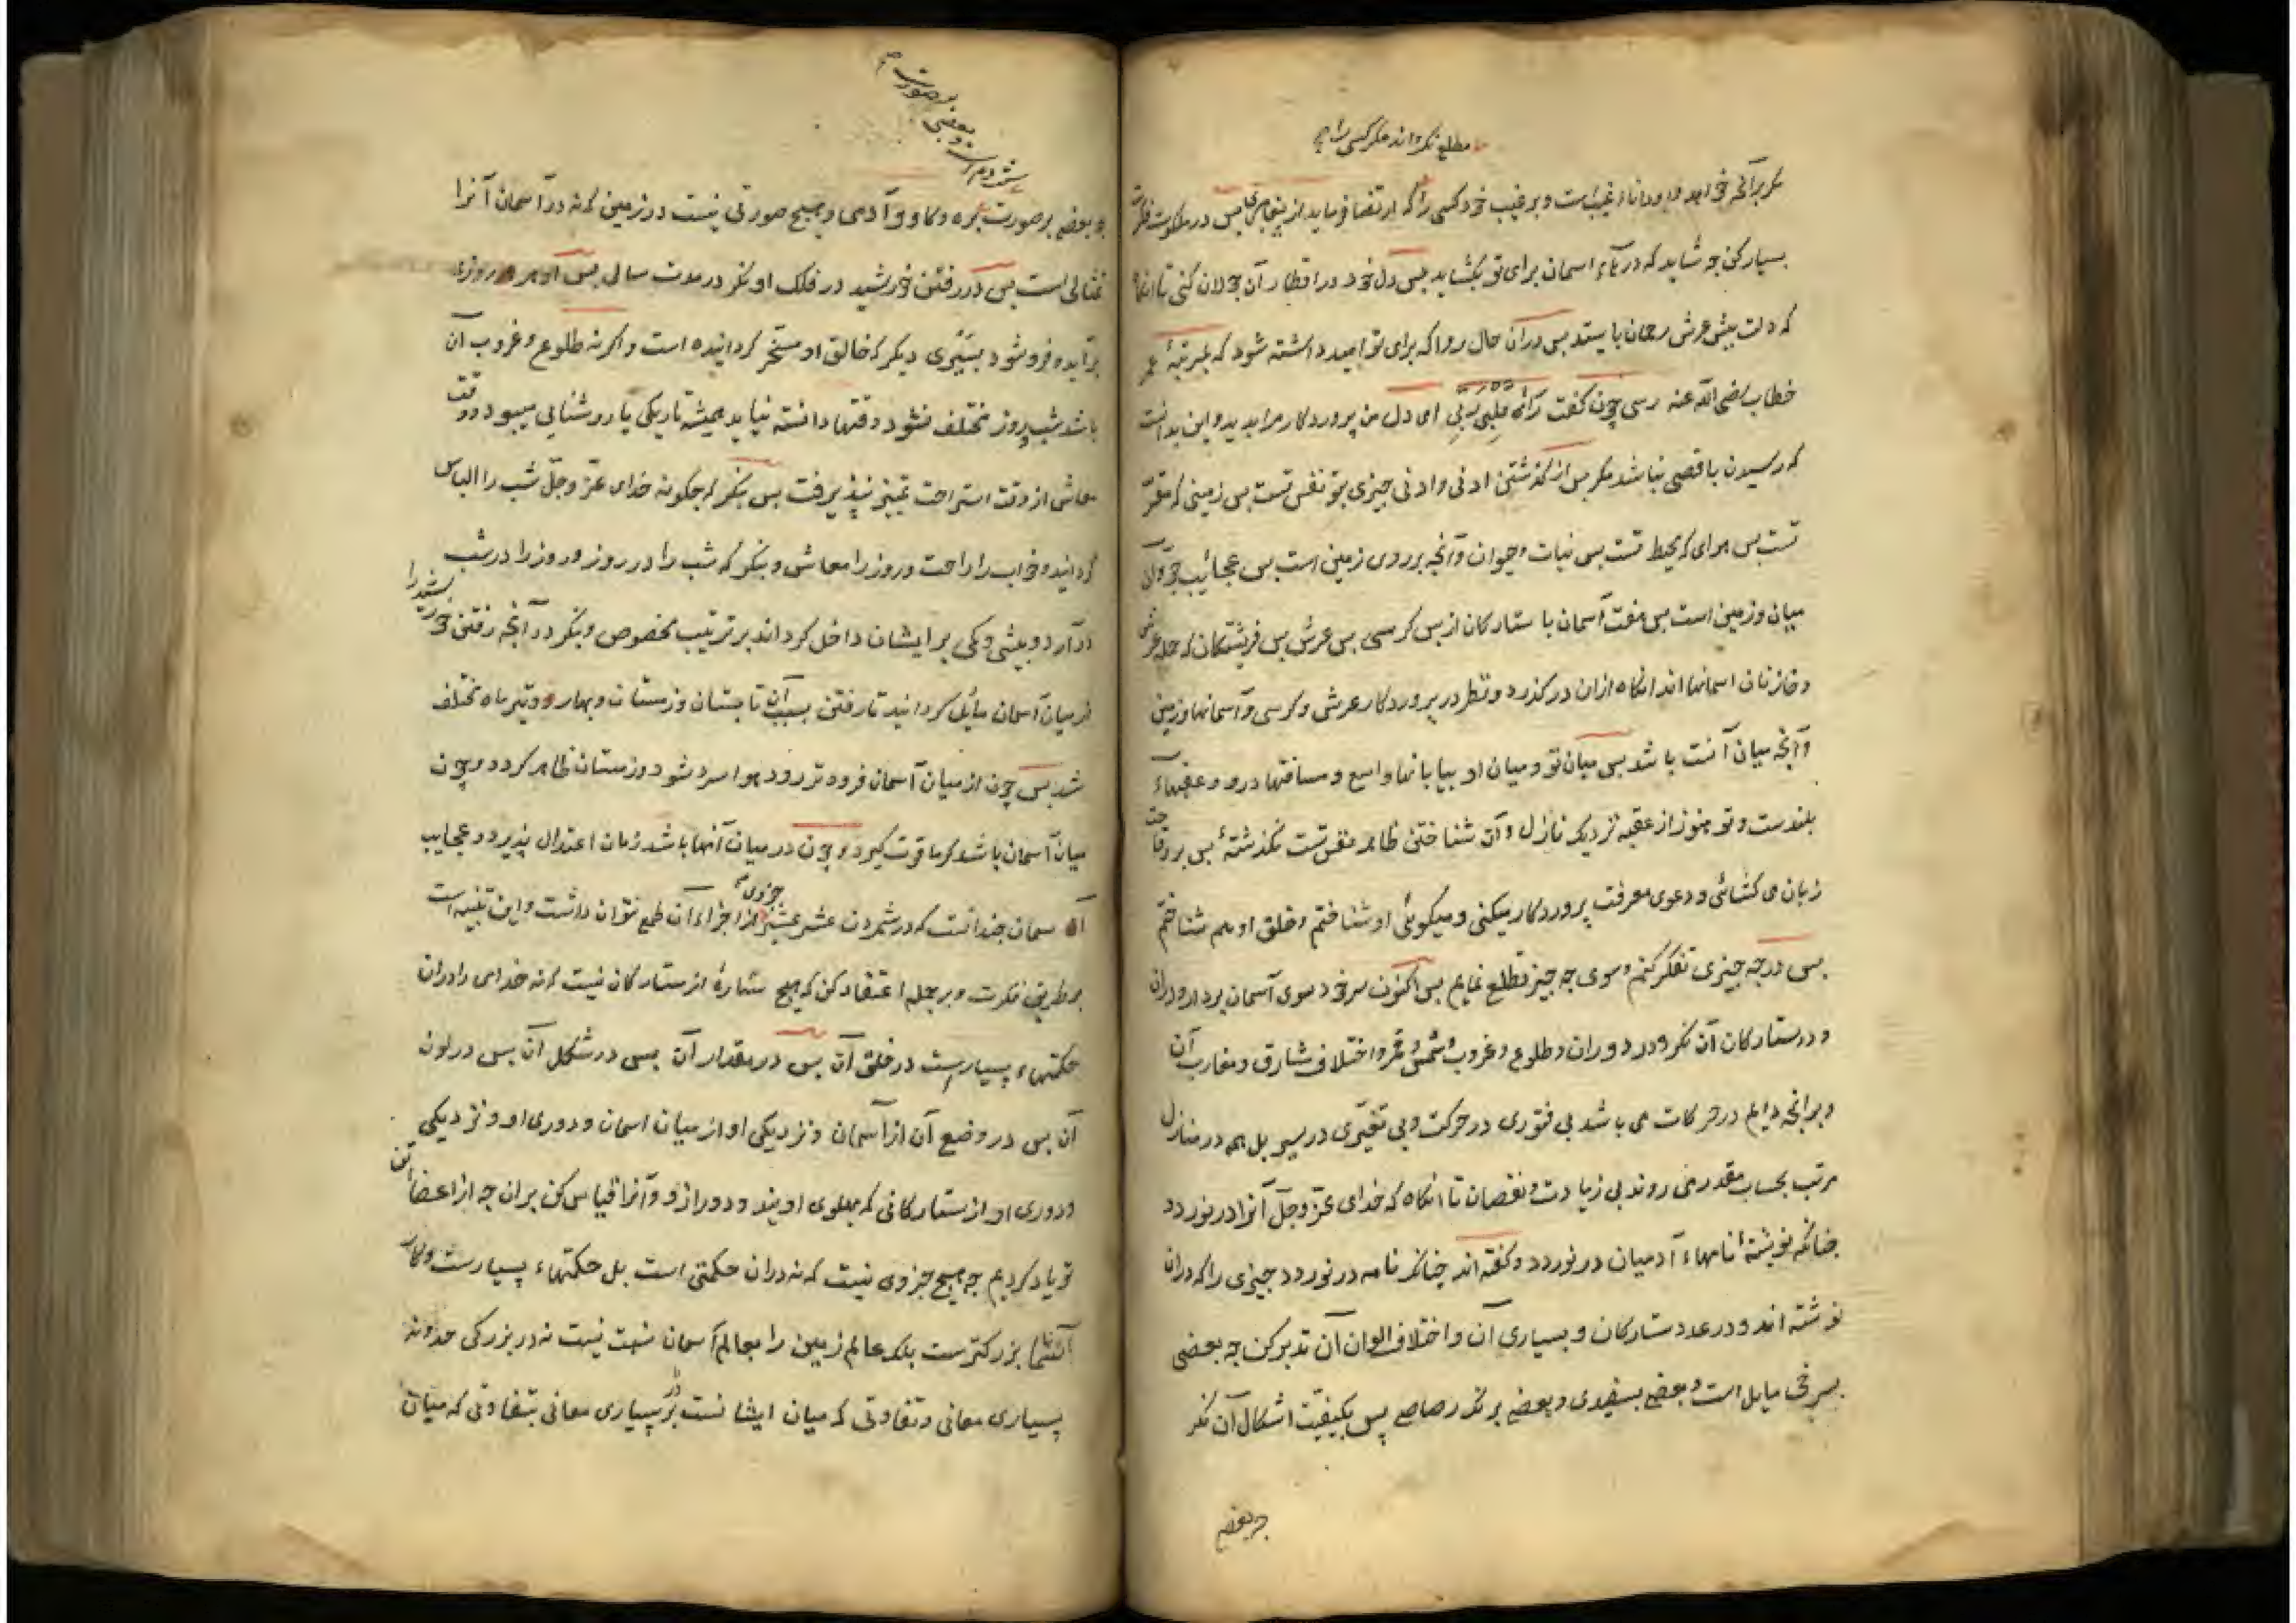 مطلع نکرداند مکر کسی را
مکر برآنچه خواهد و او داناء غیب است و بر غیب خود کسی را که ارتضا فرماید از پیغامبران پس در ملکوت فکرت
بسیار کن چه شاید که درهاء اسمان برای تو بکشاید پس دل خود در اقطار آن جولان کنی تا انکاه
که دلت پیش عرش رحمان بایستد پس دران حال روا که برای تو امید داشته شود که بمرتبۀ عمر
خطاب رضی الله عنه رسی چون کفت رَاَی قلبی ربّی ای دل من پروردکار مرا بدید و این بدانست
که رسیدن باقصی نباشد مکر پس از کذشتن ادنی و ادنی چیزی بتو نفس تست پس زمینی که مقرّ
تست پس هوای که محیط تست پس نبات و حیوان و آنچه بر روی زمین است پس عجائب جوّ و آن
میان و زمین است پس هفت آسمان با ستارکان از پس کرسی پس عرش پس فریشتکان که حمله عرش
و خازنان اسمانها اند انکاه ازان در کذرد و نظر در پروردکار عرش و کرسی و آسمانها و زمین
و آنچه میان آنست باشد پس میان تو و میان او بیابانها واسع و مسافتها درو و عقبهاء
بلندست و تو هنوز از عقبه نزدیک نازل و آن شناختن ظاهر نفس تست نکذشتۀ پس بر وقاحت
زبان می کشائی و دعوی معرفت پروردکار میکنی و میکوئی او شناختم و خلق او هم شناختم
پس در چه چیزی تفکر کنم و سوی چه چیز تطلع نمایم پس اکنون سر خود سوی آسمان بردار و دران
و در ستارکان آن نکر و در دوران و طلوع و غروب و شمس و قمر و اختلاف مشارق و مغارب آن
و برانچه دایم در حرکات می باشد بی فتوری در حرکت و بی تغیّری در سیر بل همه در منازل
مرتب بحساب مقدر می روند بی زیادت و نقصان تا انکاه که خدای عزّ و جلّ آنرا در نوردد
چنانکه نویشتۀ نامهاء آدمیان در نوردد و کفته اند چنانکر نامه در نوردد چیزی را که دران
نوشته اند و در عدد ستارکان و بسیاری آن و اختلاف الوان آن تدبر کن چه بعضی
بسرخی مایل است و بعضی بسپیدی و بعضی برنک رصاص پس بکیفیت اشکال آن نکر
چه بعضی
و بعضی بر صورت
چه بعضی بر صورت بره و کاو و آدمی و هیچ صورتی نیست در زمین که نه در آسمان آنرا
تمثالی است پس در رفتن خورشید در فلک او نکر در مدت سالی پس او هر روز
برآید و فرو شود بسَیری دیکر که خالق او مسخّر کردانیده است و اکر نه طلوع و غروب آن
باشد شب و روز مختلف نشود و وقتها دانسته نیاید همیشه تاریکی یا روشنایی میبود و وقت
معاش از وقت استراحت تمییز نپذیرفت پس بنکر که چکونه خدای عزّ و جلّ شب را الباس
کردانید و خواب را راحت و روز را معاش و بنکر که شب را در روز و روز را در شب
در آرد و بیشی و کمی بر ایشان داخل کرداند بر ترتیب مخصوص و بنکر در آنچه رفتن خورشید را
از میان آسمان مایل کردانید تا رفتن بسبب آن تابستان و زمستان و بهار و تیر ماه مختلف
شد پس چون از میان آسمان فروتر رود هوا سرد شود و زمستان ظاهر کردد و چون
میان آسمان باشد کرما قوت کیرد و چون در میان آنها باشد زمان اعتدال پذیرد و عجایب
آسمان چندانست که در شمردن عشر عشیر جزوی از اجزاء آن طمع نتوان داشت و این تنبیه است
بر طریق فکرت و بر جمله اعتقاد کن که هیچ ستارۀ از ستارکان نیست که نه خدای را دران
حکمتهاء بسیارست در خلق آن پس در مقدار آن پس در شکل آن پس در لون
آن پس در وضع آن از آسمان و نزدیکی او از میان اسمان و دوری او و نزدیکی
و دوری او از ستارکانی که پهلوی اویند و دور ازو و آنرا قیاس کن بران چه از اعضاء تن
تو یاد کردیم چه هیچ جزوی نیست که نه دران حکمتی است بل حکمتهاء بسیارست و کار
آسمان بزرکترست بلکه عالم زمین را بعالم آسمان نسبت نیست نه در بزرکی و نه در
بسیاری معانی و تفاوتی که میان ایشانست در بسیاری معانی بتفاوتی که میان